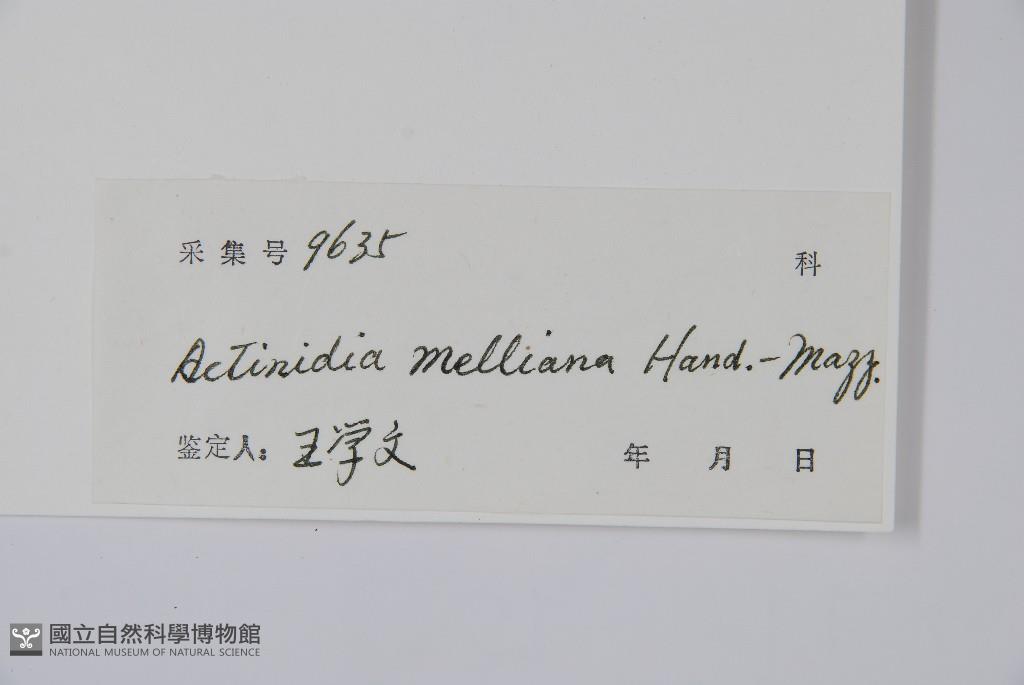 采集号 9635 科
Actinidia melliana Hand.-Mazz.
鉴定人: 王学文 年 月 日
國立自然科學博物館
NATIONAL MUSEUM OF NATURAL SCIENCE